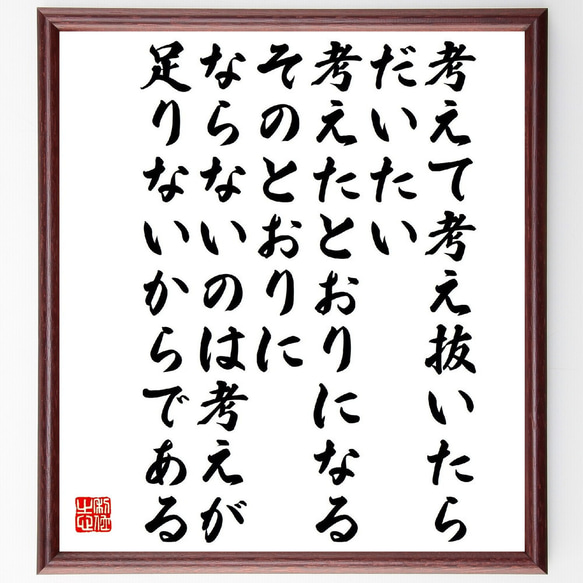 考えて考え抜いたら
だいたい
考えたとおりになる
そのとおりに
ならないのは考えが
足りないからである